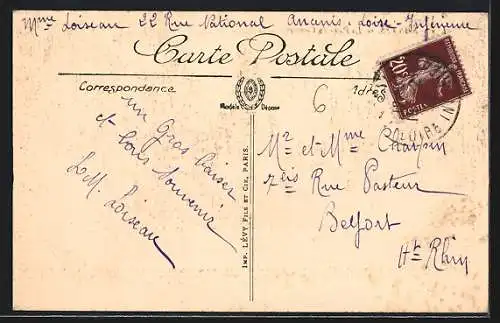 Mme Loiseau 22 Rue National Ancenis. Loire-Inférieure
Carte Postale
Correspondance
Modèle Déposé
Adres
6
un Gros baiser
et bons Souvenir
L.M. Loiseau
Mr et Mme Chapin
7 bis Rue Pasteur
Belfort
Ht Rhin
IMP. LÉVY FILS ET CIE, PARIS.
20c
POSTES
LOIRE IN